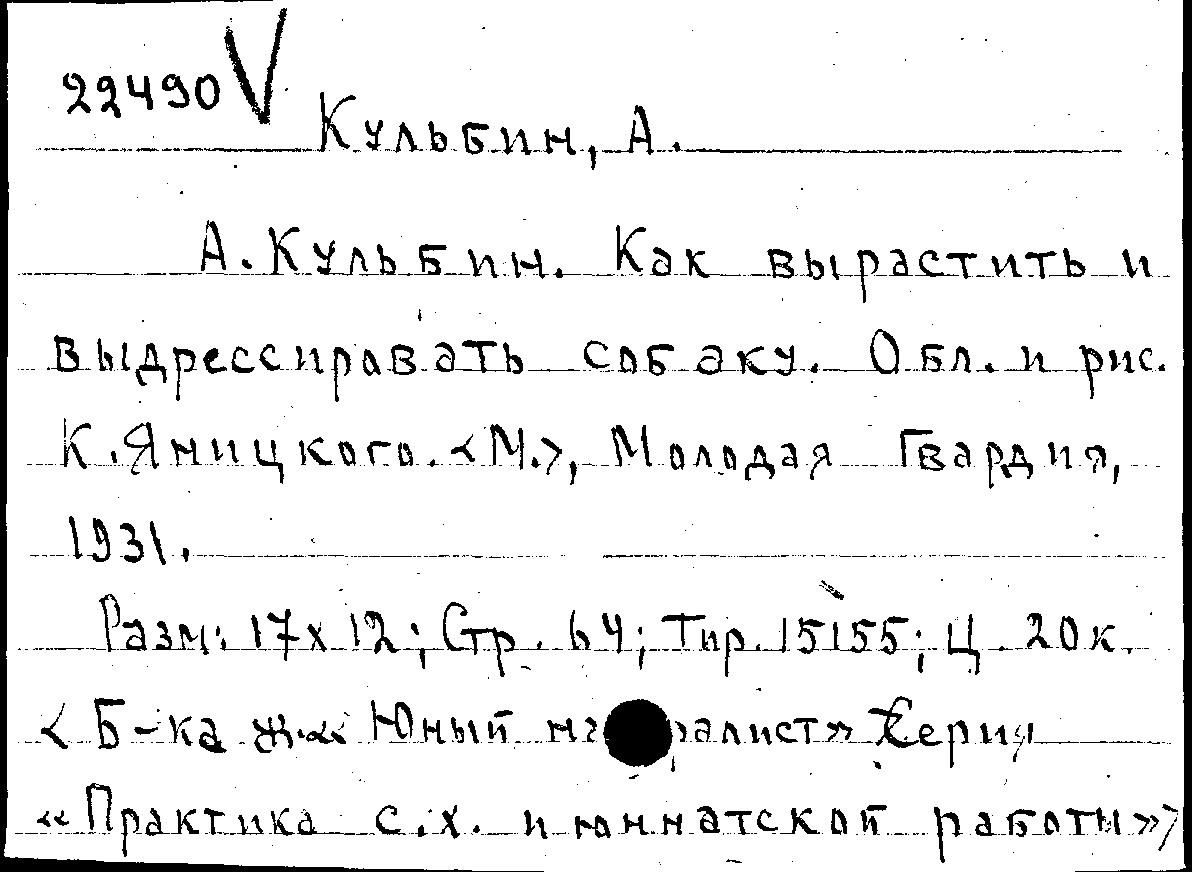 22490 V
Кульбин, А.
А. Кульбин. Как вырастить и
выдрессировать собаку. Обл. и рис.
К. Яницкого. <М.>, Молодая Гвардия,
1931.
Разм: 17х12; Стр. 64; Тир. 15155; Ц. 20к.
< Б-ка ж. «Юный на ралист» Серия
«Практика с.х. и юннатской работы»>